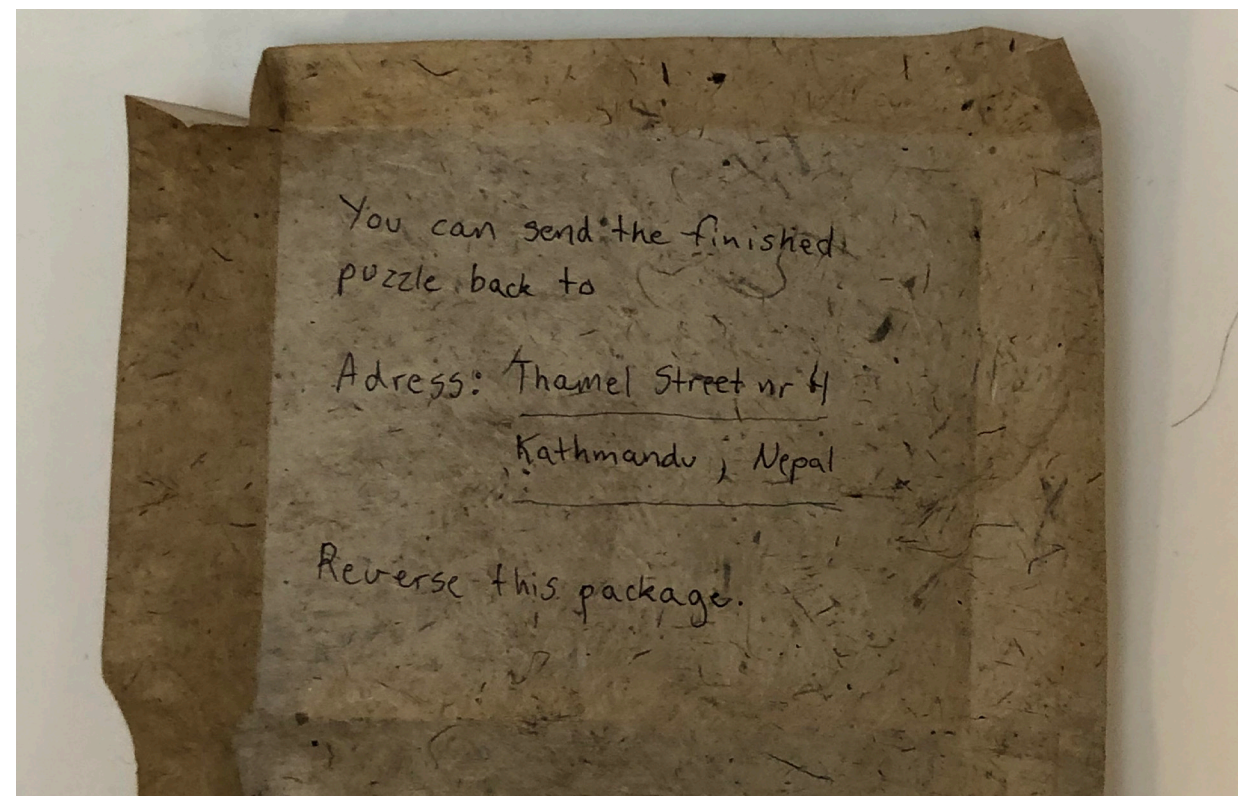 You can send the finished
puzzle back to
Adress: Thamel Street nr 4
Kathmandu, Nepal
Reverse this package.